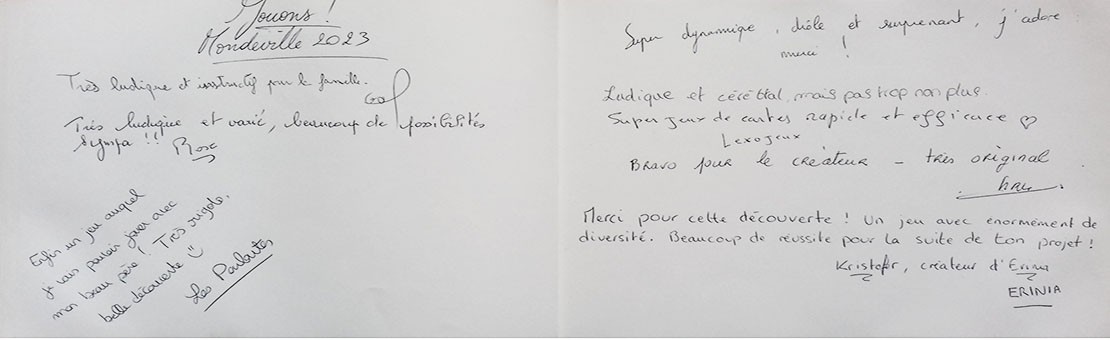 Jouons !
Mondeville 2023
Très ludique et instructif pour la famille.
Très ludique et varié, beaucoup de possibilités
sympa !!! Rose
Enfin un jeu auquel
je vais pouvoir jouer avec
mon beau père ! Très rigolo.
belle découverte ☺
Les
Super dynamique, drôle et surprenant, j'adore
merci !
Ludique et cérébral, mais pas trop non plus.
Super jeux de cartes rapide et efficace ♡
Lexojeux
Bravo pour le créateur - très original
Merci pour cette découverte ! Un jeu avec énormément de
diversité. Beaucoup de réussite pour la suite de ton projet !
Kristofer, créateur d'Erinia
ERINIA